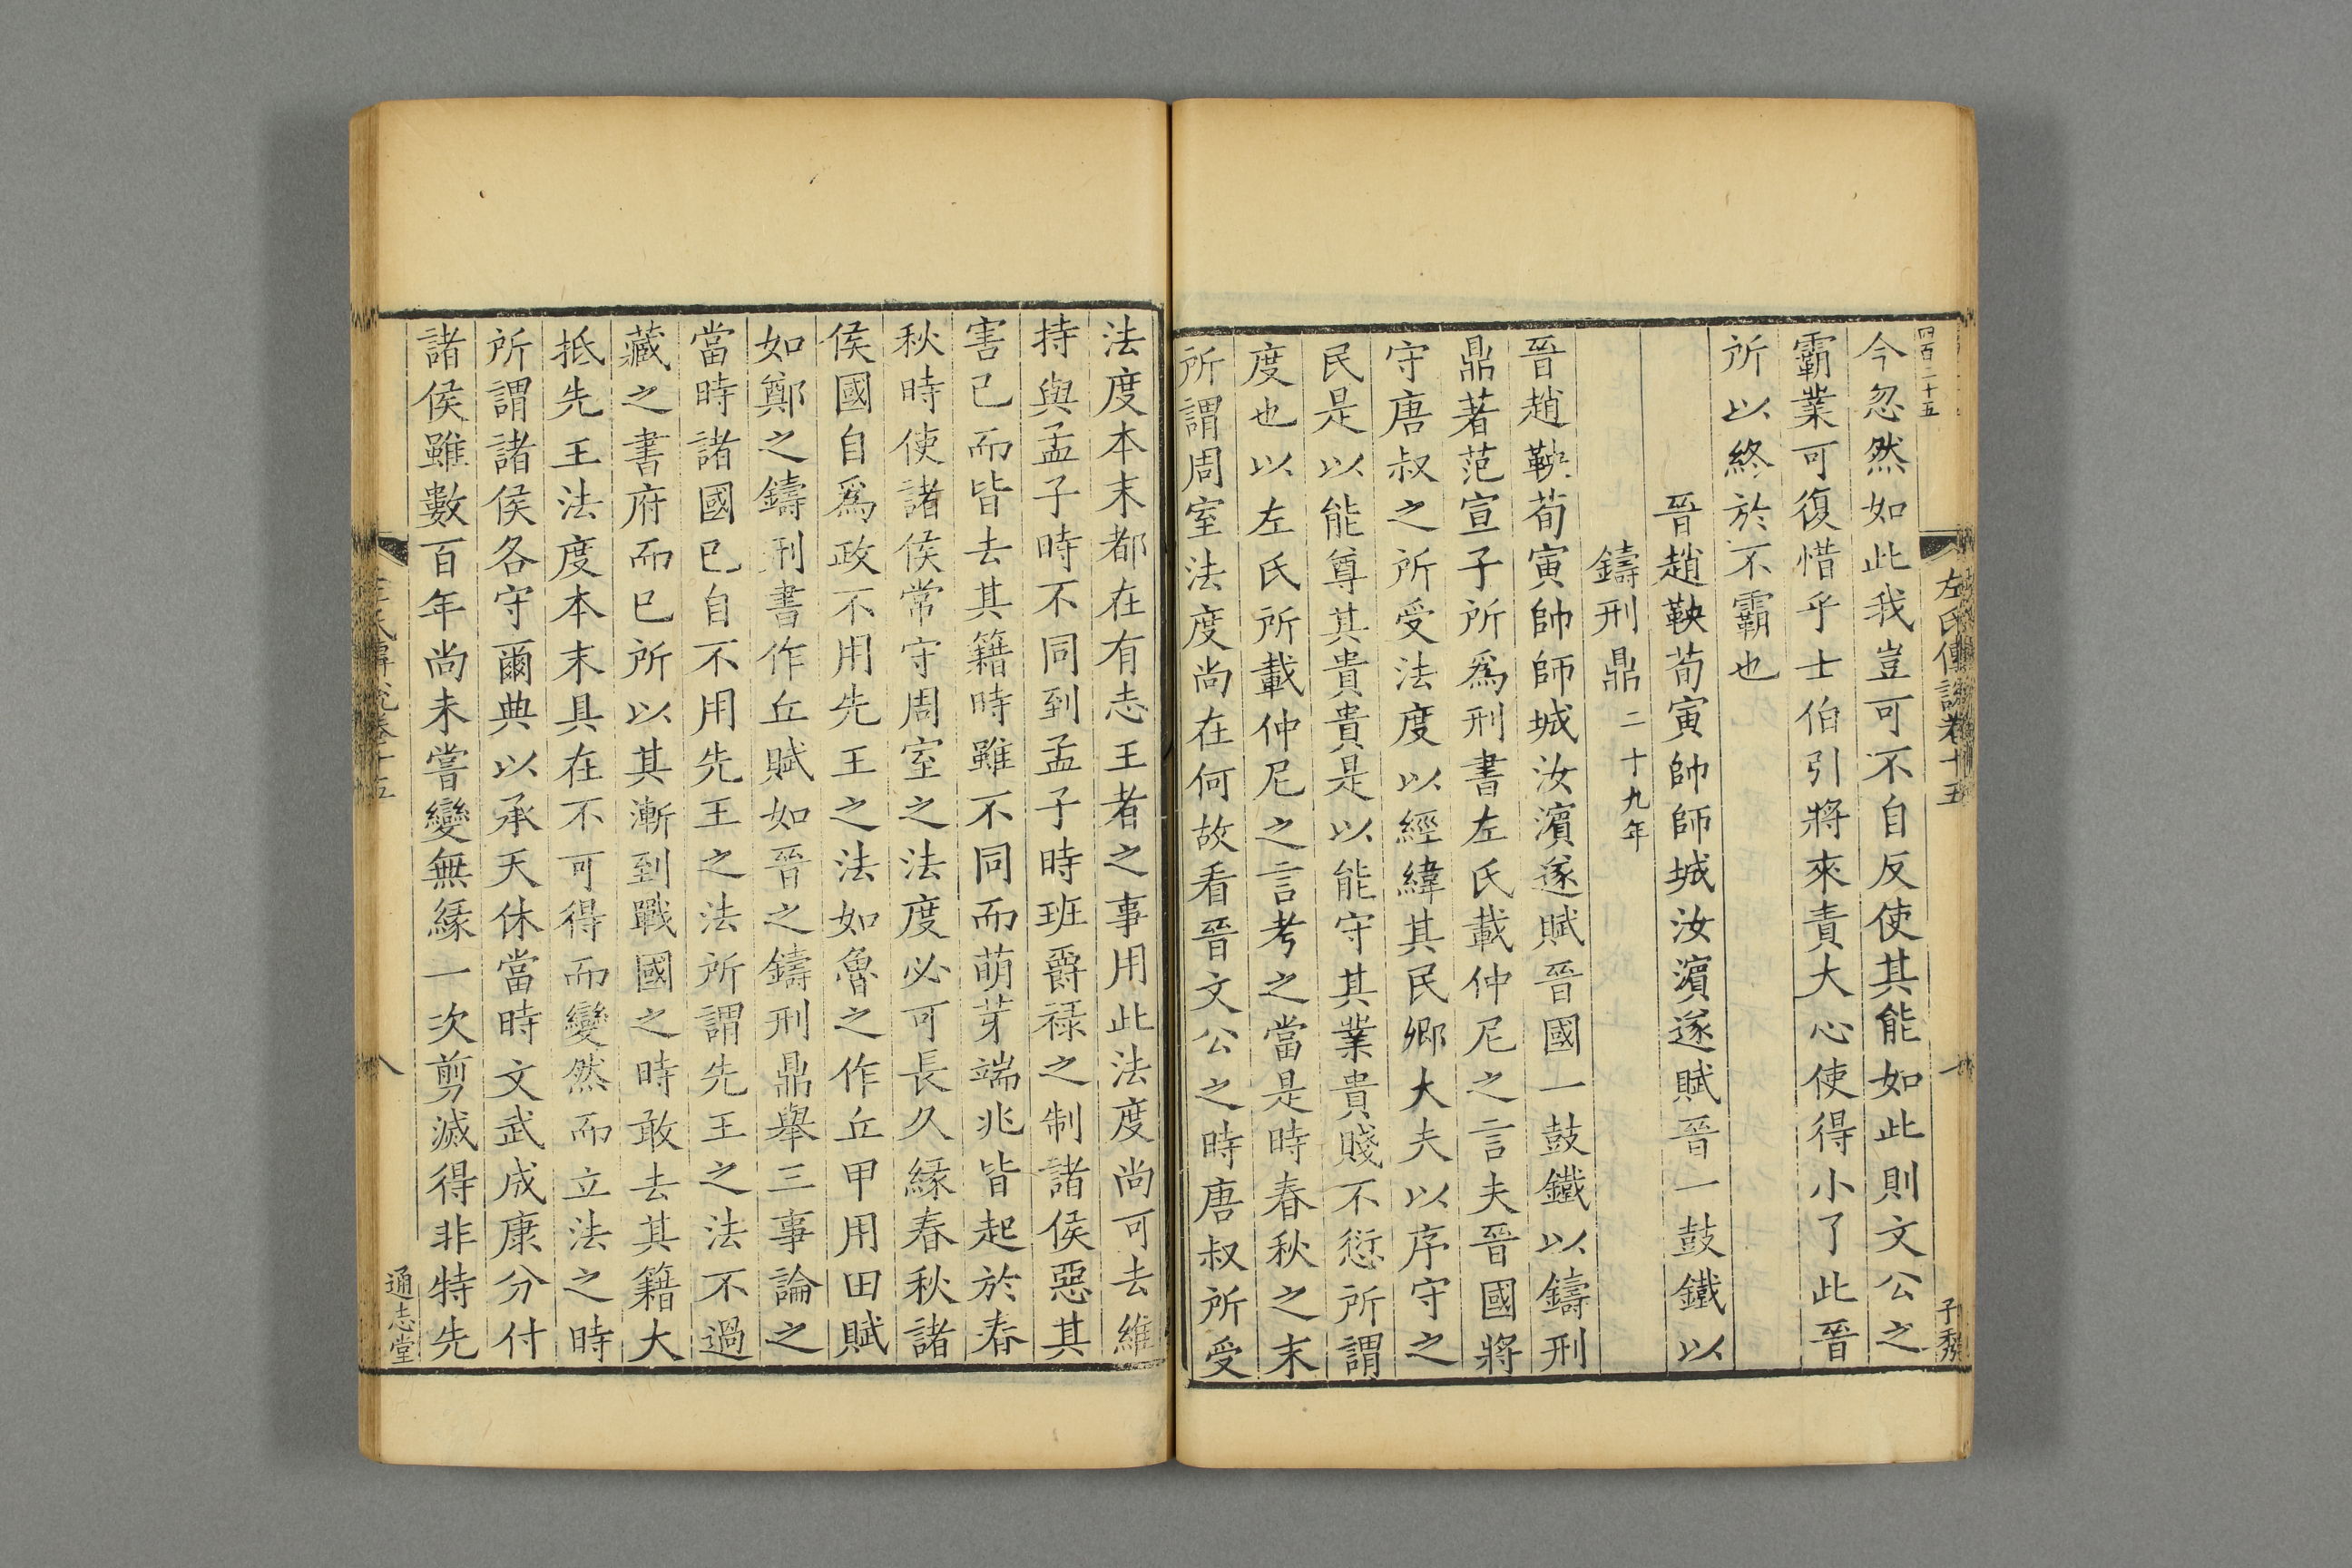 四百二十五
左氏傳說卷十五
子秀
今忽然如此我豈可不自反使其能如此則文公之
霸業可復惜乎士伯引將來責大心使得小了此晉
所以終於不霸也
晉趙鞅荀寅帥師城汝濱遂賦晉一鼓鐵以
鑄刑鼎二十九年
晉趙鞅荀寅帥師城汝濱遂賦晉國一鼓鐵以鑄刑
鼎著范宣子所爲刑書左氏載仲尼之言夫晉國將
守唐叔之所受法度以經緯其民鄉大夫以序守之
民是以能尊其貴貴是以能守其業貴賤不愆所謂
度也以左氏所載仲尼之言考之當是時春秋之末
所謂周室法度尚在何故看晉文公之時唐叔所受
法度本末都在有志王者之事用此法度尚可去維
持與孟子時不同到孟子時班爵禄之制諸侯惡其
害已而皆去其籍時雖不同而萌芽端兆皆起於春
秋時使諸侯常守周室之法度必可長久緣春秋諸
侯國自爲政不用先王之法如魯之作丘甲用田賦
如鄭之鑄刑書作丘賦如晉之鑄刑鼎舉三事論之
當時諸國已自不用先王之法所謂先王之法不過
藏之書府而已所以其漸到戰國之時敢去其籍大
抵先王法度本末具在不可得而變然而立法之時
所謂諸侯各守爾典以承天休當時文武成康分付
諸侯雖數百年尚未嘗變無緣一次剪滅得非特先
左氏傳說卷十五
八
通志堂